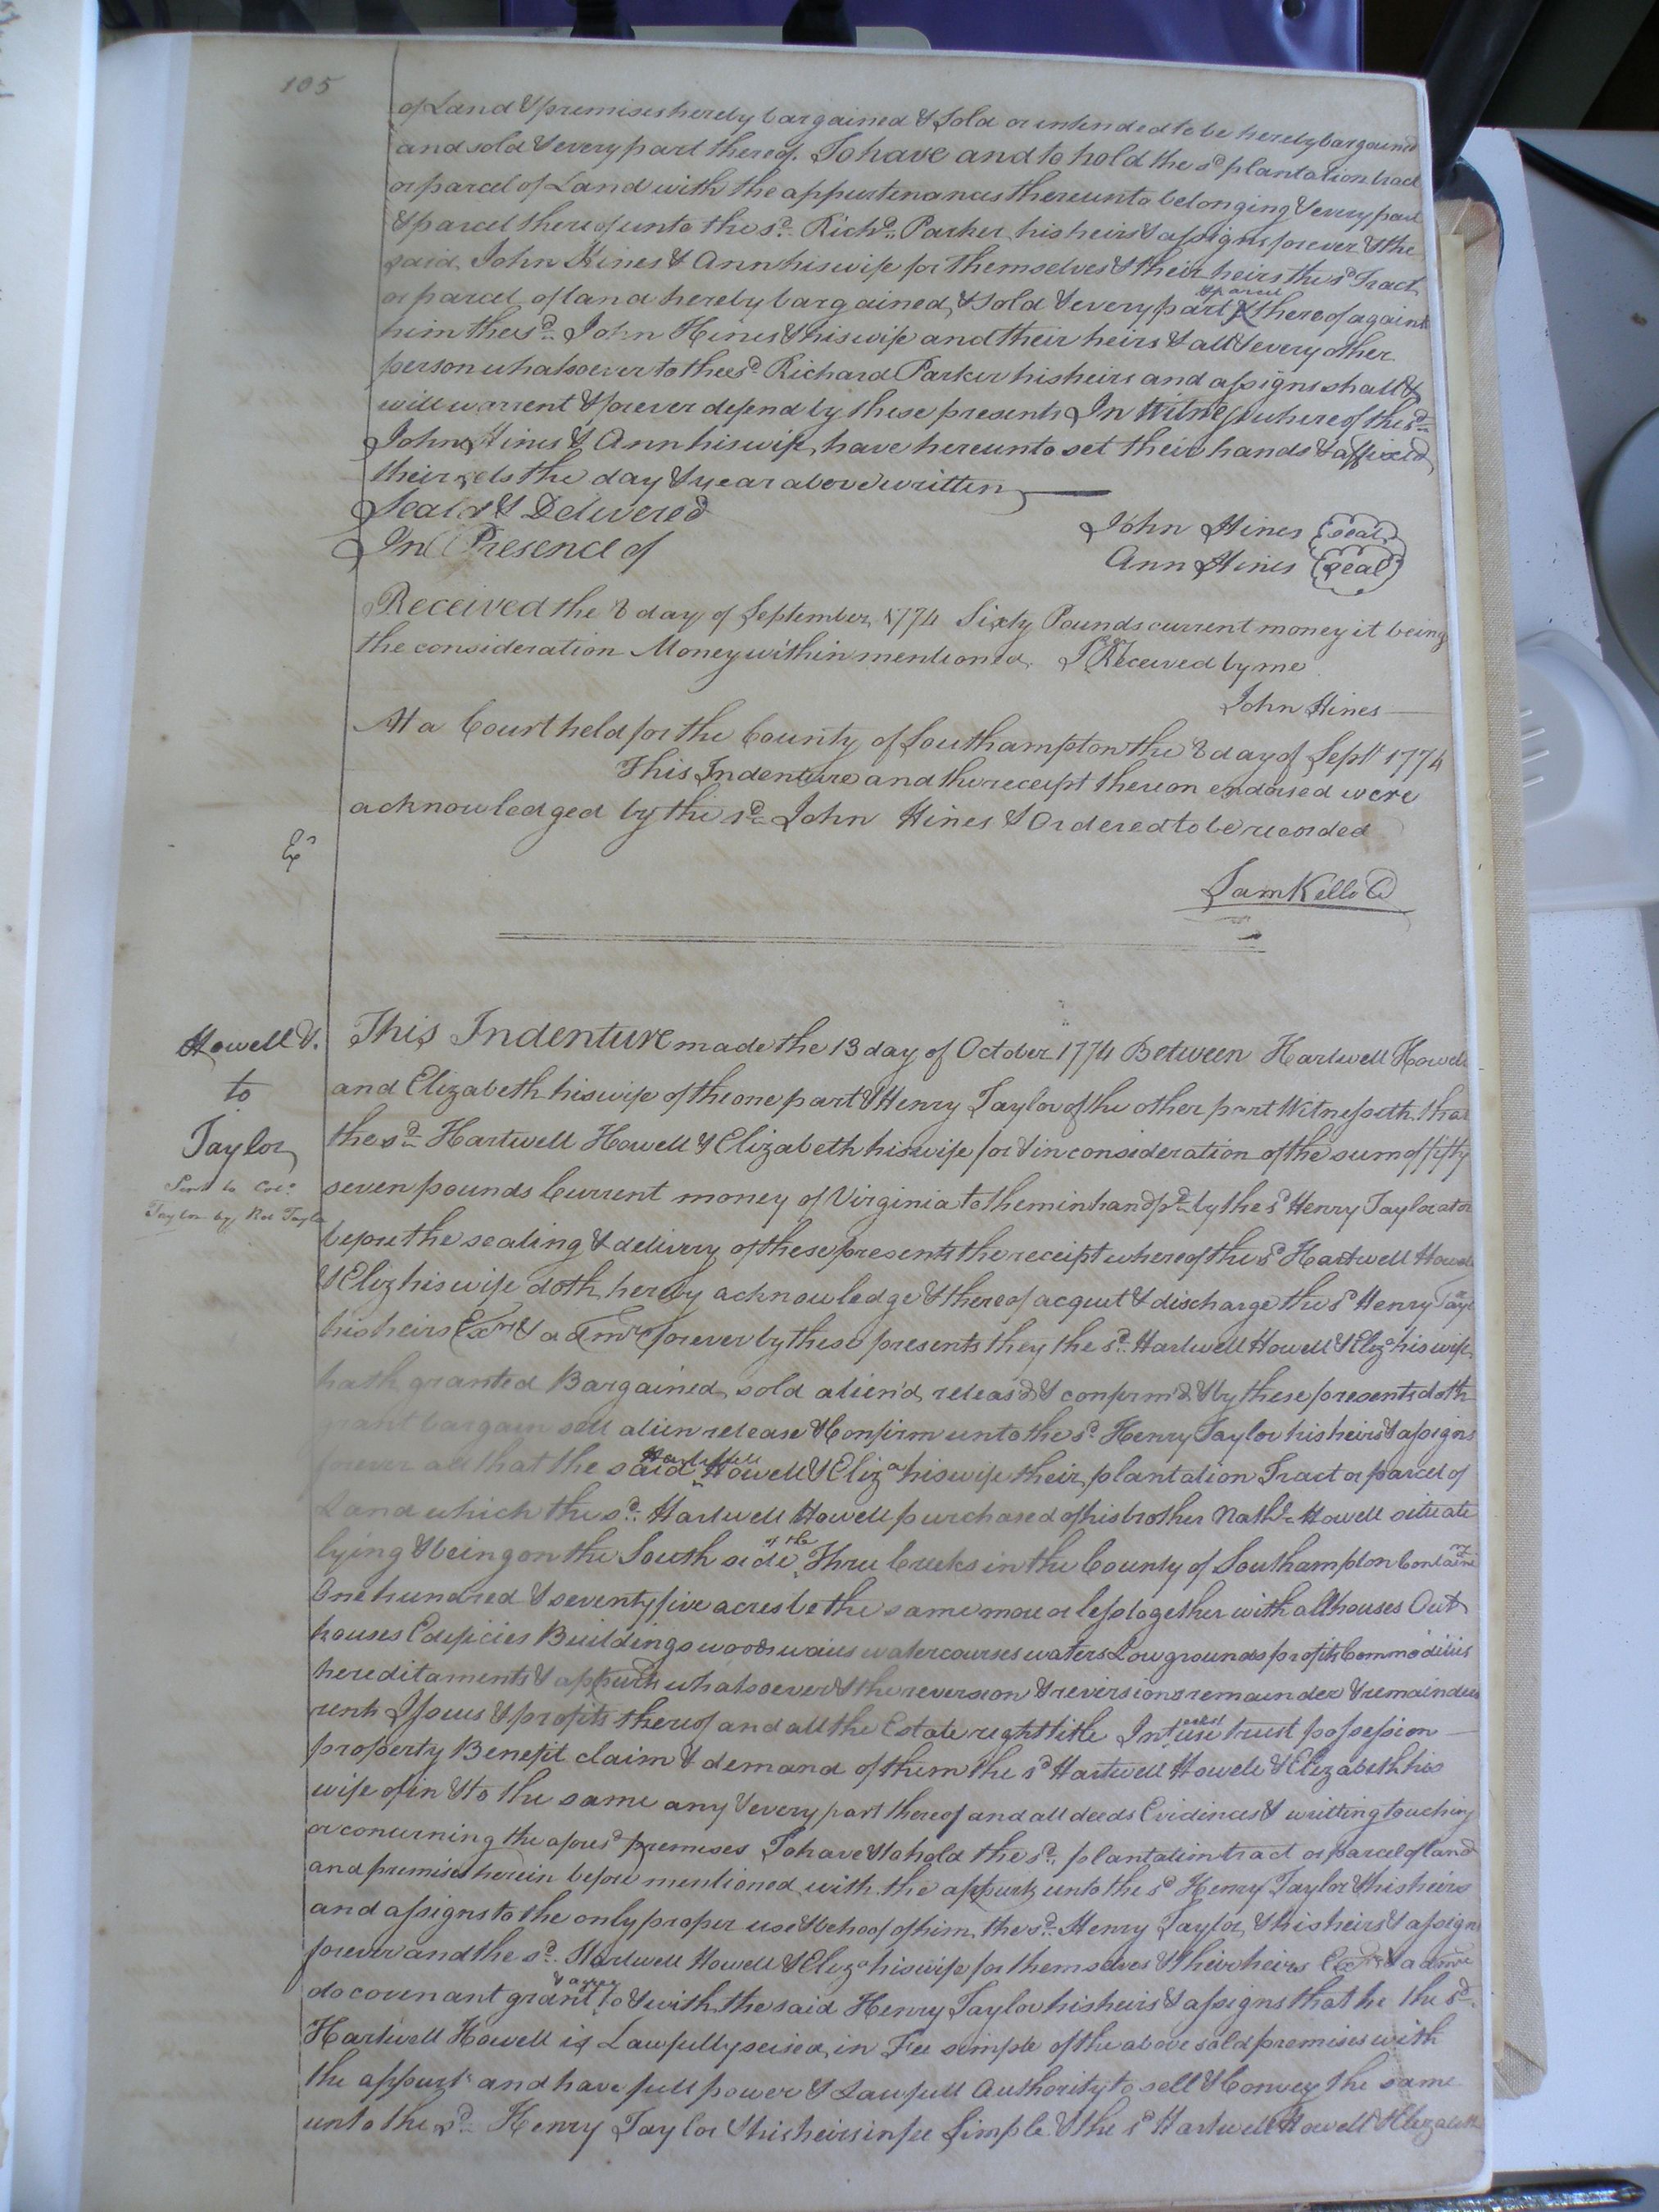 105
of Land & premises hereby bargained & Sold or intended to be hereby bargained
and sold & every part thereof. To have and to hold the sd plantation tract
or parcel of Land with the appurtenances thereunto belonging & every part
& parcel thereof unto the sd. Richd. Parker his heirs & assigns forever & the
said John Hines & Ann his wife for themselves & their heirs the sd Tract
or parcel of land hereby bargained & Sold & every part & parcel thereof against
him the sd. John Hines & his wife and their heirs & all & every other
person whatsoever to the sd. Richard Parker his heirs and assigns shall &
will warrent & forever defend by these presents In Witness whereof the sd.
John Hines & Ann his wife have hereunto set their hands & affixed
their sels the day & year above written
Seald & Delivered
In Presence of
John Hines Seal
Ann Hines Seal
Received the 8 day of September 1774 Sixty Pounds current money it being
the consideration Money within mentioned. Received by me
John Hines
At a Court held for the County of Southampton the 8 day of Sept 1774
This Indenture and the receipt thereon endorsed were
acknowledged by the sd. John Hines & Ordered to be recorded
Exd
Sam Kello C
Howell &.
to
Taylor
Sent to Colo.
Taylor by Ro Taylor
This Indenture made the 13 day of October 1774 Between Hartwell Howell
and Elizabeth his wife of the one part & Henry Taylor of the other part Witnesseth that
the sd. Hartwell Howell & Elizabeth his wife for & in consideration of the sum of fifty
seven pounds Current money of Virginia to them in hand pd. by the sd Henry Taylor at or
before the sealing & delivery of these presents the receipt whereof the sd Hartwell Howell
& Eliz his wife doth hereby acknowledge & thereof acquit & discharge the sd Henry Taylor
his heirs Exrs & admrs forever by these presents they the sd. Hartwell Howell & Eliza his wife
hath granted Bargained sold alien'd releas'd & confirm'd & by these presents doth
grant bargain sell alien release & Confirm unto the sd. Henry Taylor his heirs & assigns
forever all that the said Hartwell Howell & Eliza his wife their plantation Tract or parcel of
Land which the sd. Hartwell Howell purchased of his brother Nathl. Howell situate
lying & being on the South side of the Three Creeks in the County of Southampton Containing
One hundred & seventy five acres be the same more or less together with all houses Out
houses Edificies Buildings woods waies watercourses waters Low grounds profits Commodities
hereditaments & appurts whatsoever & the reversion & reversions remainder & remainders
rents Issues & profits thereof and all the Estate right title Intrest use trust possession
property Benefit claim & demand of them the sd Hartwell Howell & Elizabeth his
wife of in & to the same any & every part thereof and all deeds Evidences & writing touching
or concerning the afores'd premises To have & to hold the sd. plantation tract or parcel of land
and premises herein before mentioned with the appurts unto the sd Henry Taylor & his heirs
and assigns to the only proper use & behoof of him the sd. Henry Taylor & his heirs & assigns
forever and the sd. Hartwell Howell & Eliza his wife for themselves & their heirs Exrs & admrs
do covenant grant & agree to & with the said Henry Taylor his heirs & assigns that he the sd.
Hartwell Howell is Lawfully seised in Fee simple of the above sold premises with
the appurts and have full power & Lawfull Authority to sell & Convey the same
unto the sd. Henry Taylor & his heirs in fee Simple & the sd Hartwell Howell & Elizabeth